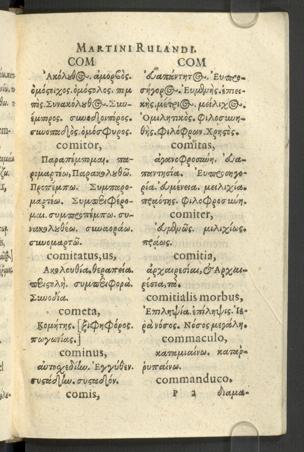 MARTINI RULANDI.
COM
Ἀκόλουθος. ἀμορβός.
ὁμόστιχος. ὁμόστολος. πομ-
πός. Συνακόλουθος. Συν-
έμπορος. συνοδοιπόρος.
comitor,
Παραπέμπομαι.
Παρακολουθῶ.
Προπέμπω. Συμπαρο-
μαρτέω. Συμπεριφέρο-
μαι. συμπροπέμπω. συ-
νακολουθέω. συνοπαδέω.
συνομαρτῶ.
comitatus, us,
Ἀκολουθία. θεραπεία.
συμπεριφορά.
Συνοδία.
cometa,
Κομήτης. [ξιφηφόρος.
πωγωνίας.]
cominus,
αὐτοσχεδίην. Ἐγγύθεν.
συσταδίην. συσταδόν.
comis,
COM
Εὐπροσ-
ήγορος. Εὔρυθμος. ἐπιει-
κής. μέτριος. μείλιχος.
Ὁμιλητικός. Φιλοσυνη-
θής. Φιλόφρων. Χρηστός.
comitas,
ἀγανοφροσύνη.
Εὐπροσηγο-
ρία. εὐμένεια. μειλιχία.
πραότης. Φιλοφροσύνη.
comiter,
εὐρύθμως. μειλιχίως.
πράως.
comitia,
ἀρχαιρεσίαι, & Ἀρχαι-
ρέσια, τά.
comitialis morbus,
Ἐπιληψία. ἐπίληψις. ἱε-
ρὰ νόσος. Νόσος μεγάλη.
commaculo,
καταμιαίνω. καταρ-
ρυπαίνω.
commanduco,
P 2 διαμα-